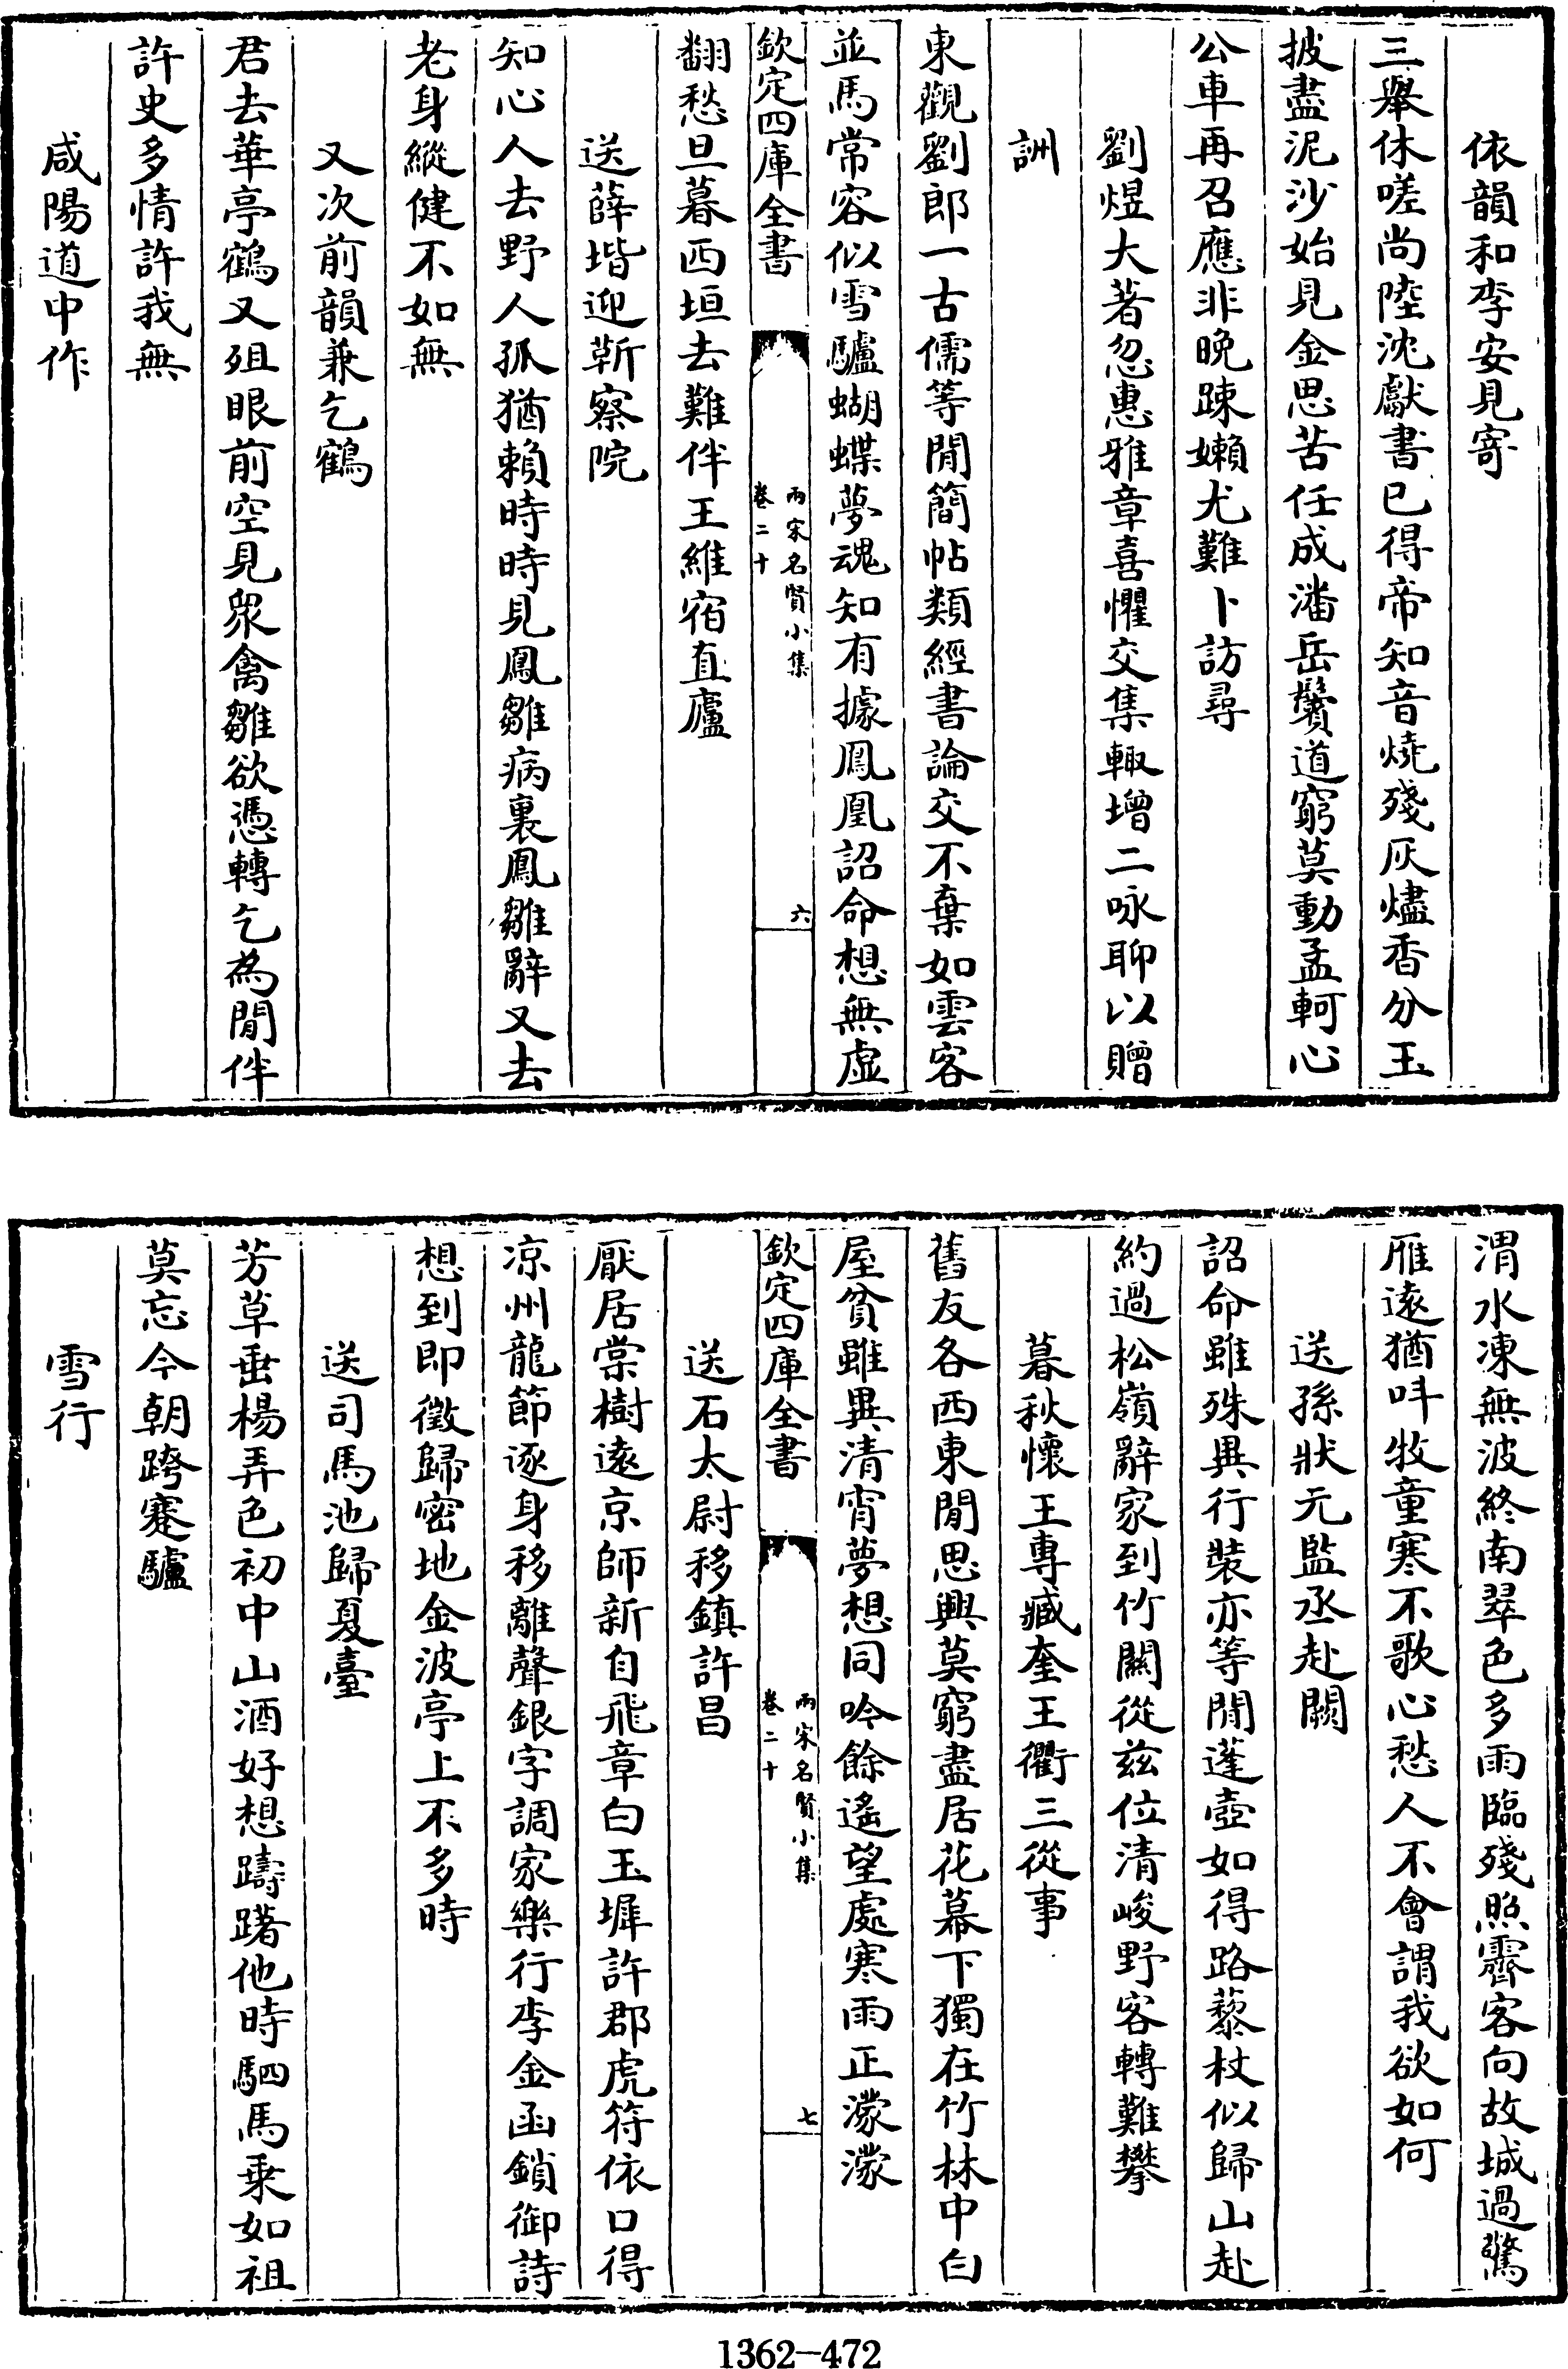 依韻和李安見寄
三舉休嗟尚陸沈獻書已得帝知音燒殘灰燼香分玉
披盡泥沙始見金思苦任成潘岳鬢道窮莫動孟軻心
公車再召應非晚踈嬾尤難卜訪尋
劉煜大著忽惠雅章喜懼交集輙增二咏聊以贈
詶
東觀劉郎一古儒等閒簡帖類經書論交不棄如雲客
並馬常容似雪驢蝴蝶夢魂知有據鳳凰詔命想無虛
欽定四庫全書
兩宋名賢小集
卷二十
六
翻愁旦暮西垣去難伴王維宿直廬
送薛堦迎靳察院
知心人去野人孤猶賴時時見鳳雛病裏鳳雛辭又去
老身縱健不如無
又次前韻兼乞鶴
君去華亭鶴又殂眼前空見衆禽雛欲憑轉乞為閒伴
許史多情許我無
咸陽道中作
渭水凍無波終南翠色多雨臨殘照霽客向故城過驚
雁遠猶呌牧童寒不歌心愁人不會謂我欲如何
送孫狀元監丞赴闕
詔命雖殊異行裝亦等閒蓬壺如得路藜杖似歸山赴
約過松嶺辭家到竹關從兹位清峻野客轉難攀
暮秋懷王專臧奎王衢三從事
舊友各西東閒思興莫窮盡居花幕下獨在竹林中白
屋貧雖異清宵夢想同吟餘遙望處寒雨正濛濛
欽定四庫全書
兩宋名賢小集
卷二十
七
送石太尉移鎮許昌
厭居棠樹遠京師新自飛章白玉墀許郡虎符依口得
凉州龍節逐身移離聲銀字調家樂行李金函鎖御詩
想到即徵歸密地金波亭上不多時
送司馬池歸夏臺
芳草垂楊弄色初中山酒好想躊躇他時駟馬乘如祖
莫忘今朝跨蹇驢
雪行
1362-472